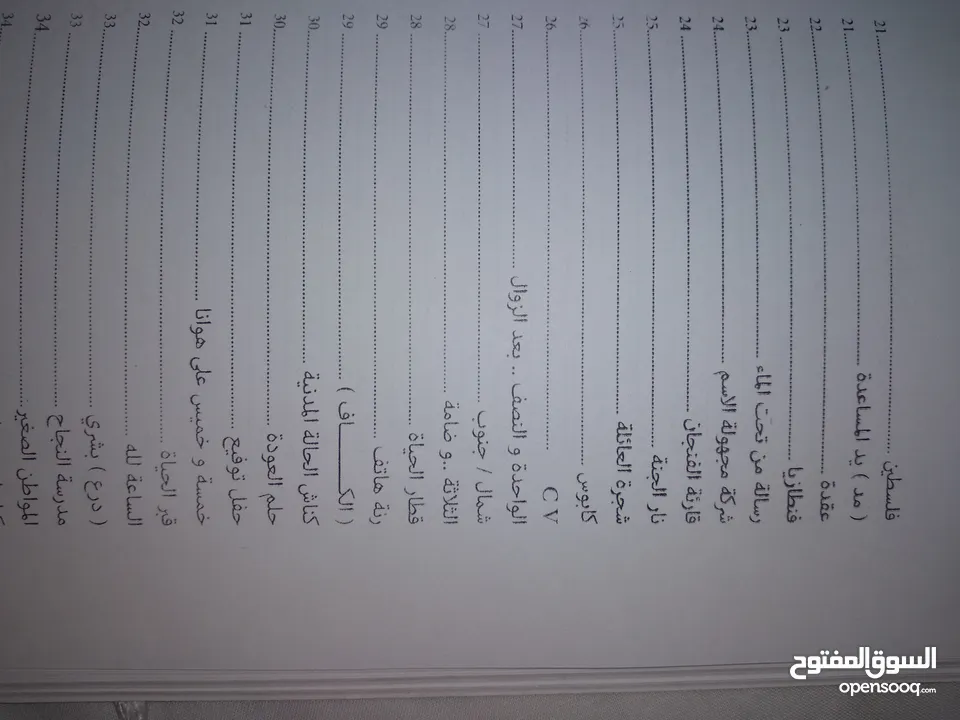 فلسطين ........ 21
( مد ) يد المساعدة ........ 21
عقدة ........ 22
فنطازيا ........ 23
رسالة من تحت الماء ........ 23
شركة مجهولة الاسم ........ 24
قارئة الفنجان ........ 24
نار الجنة ........ 25
شجرة العائلة ........ 25
كابوس ........ 26
CV ........ 26
الواحدة و النصف .. بعد الزوال ........ 27
شمال / جنوب ........ 27
الثلاثة ..و ضامة ........ 28
قطار الحياة ........ 28
رنة هاتف ........ 29
( الكـــــاف ) ........ 29
كناش الحالة المدنية ........ 30
حلم العودة ........ 30
حفل توقيع ........ 31
خمسة و خميس على هوانا ........ 31
قبر الحياة ........ 32
الساعة لله ........ 32
( درع ) بشري ........ 33
مدرسة النجاح ........ 33
المواطن الصغير ........ 34
34
السوق المفتوح
opensooq.com